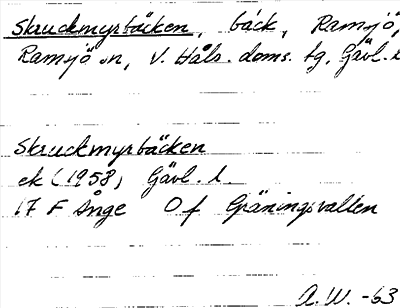 Skruckmyrbäcken, bäck, Ramsjö,
Ramsjö sn, V. Häls. doms. tg, Gävl. l
Skruckmyrbäcken
ek (1958) Gävl. l
17 F Ånge O f Gräningsvallen
A.W. -63